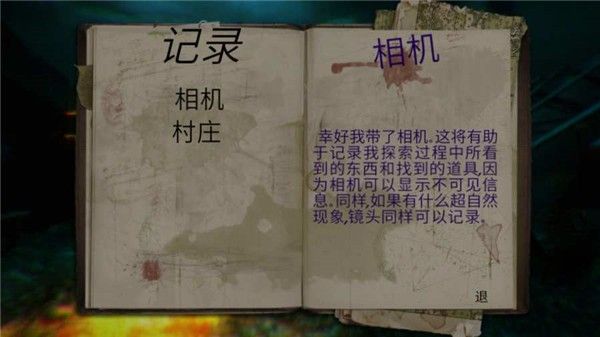 记录
相机
村庄
相机
幸好我带了相机。这将有助
于记录我探索过程中所看
到的东西和找到的道具,因
为相机可以显示不可见信
息。同样,如果有什么超自然
现象,镜头同样可以记录。
退